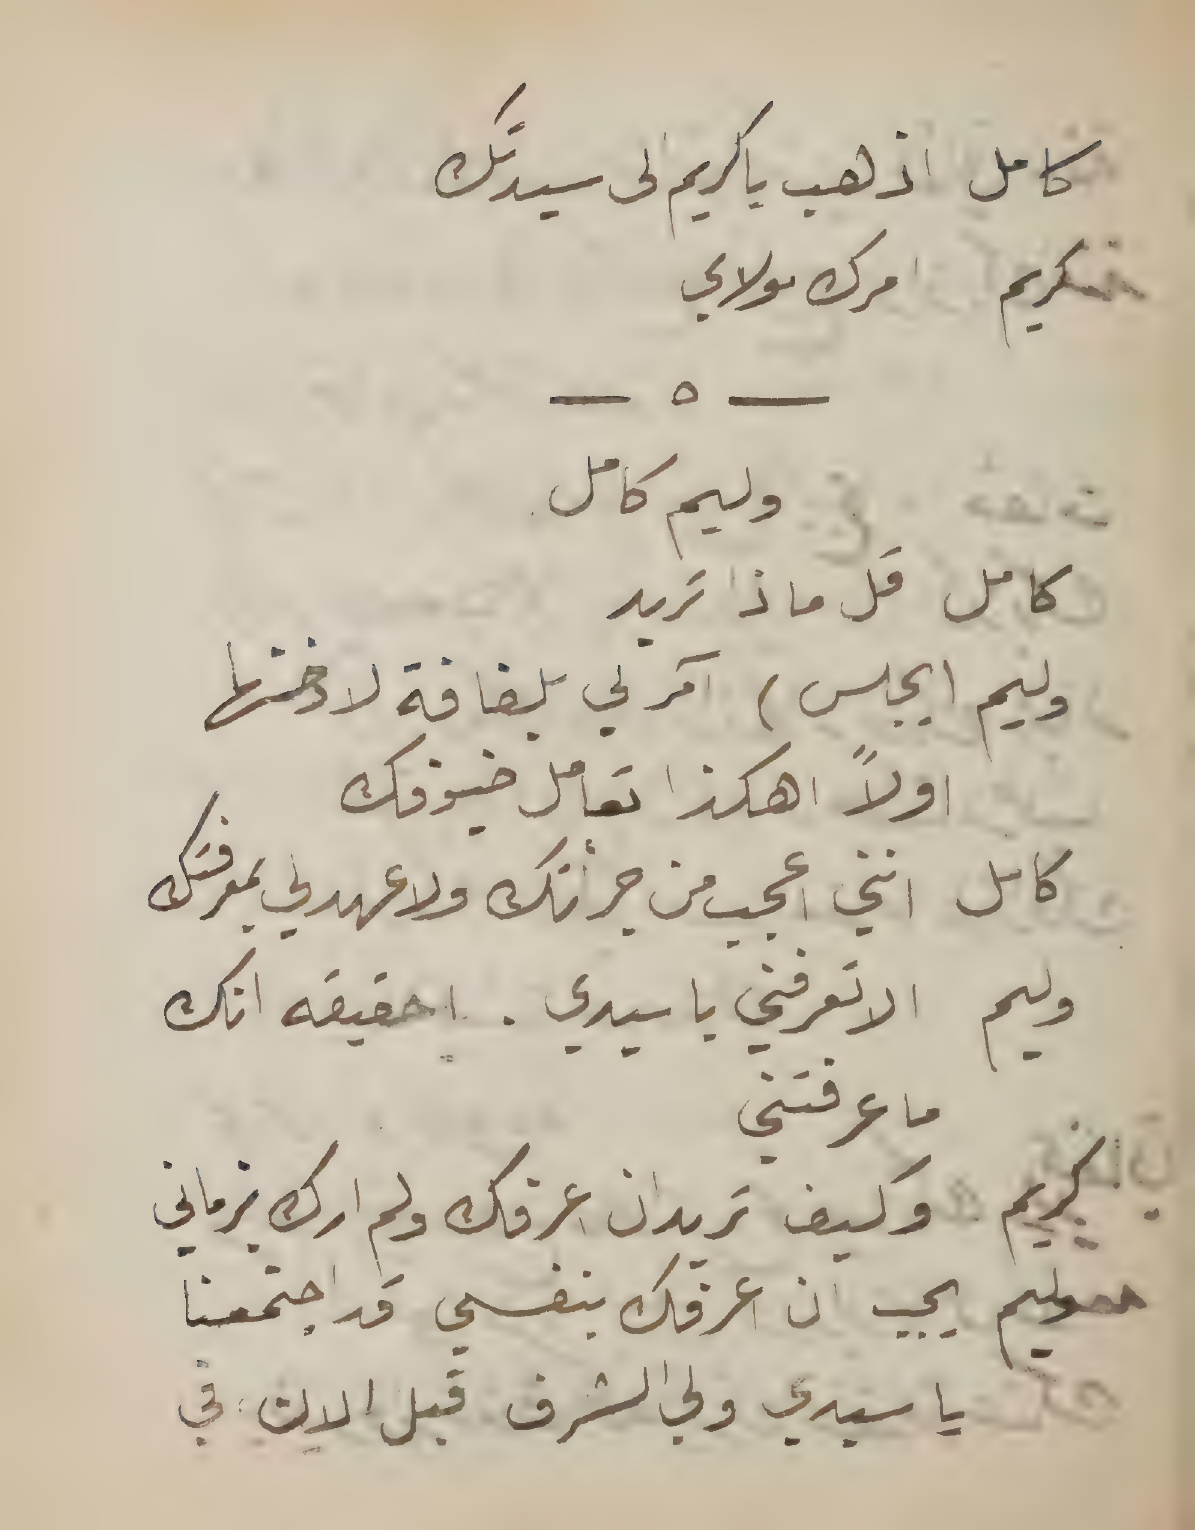 كامل اذهب ياكريم الى سيدتك
كريم امرك مولاي
— ه —
وليم كامل
كامل قل ماذا تريد
وليم (يجلس) آمر لي بلفافة لادخنها
اولاً اهكذا تعامل ضيوفك
كامل انني اعجب من جرأتك ولا عهد لي بمعرفتك
وليم الا تعرفني يا سيدي . احقيقه انك
ما عرفتني
كريم وكيف تريد ان اعرفك ولم ارك بزماني
وليم يجب ان اعرفك بنفسي قد اجتمعنا
يا سيدي ولي الشرف قبل الان في